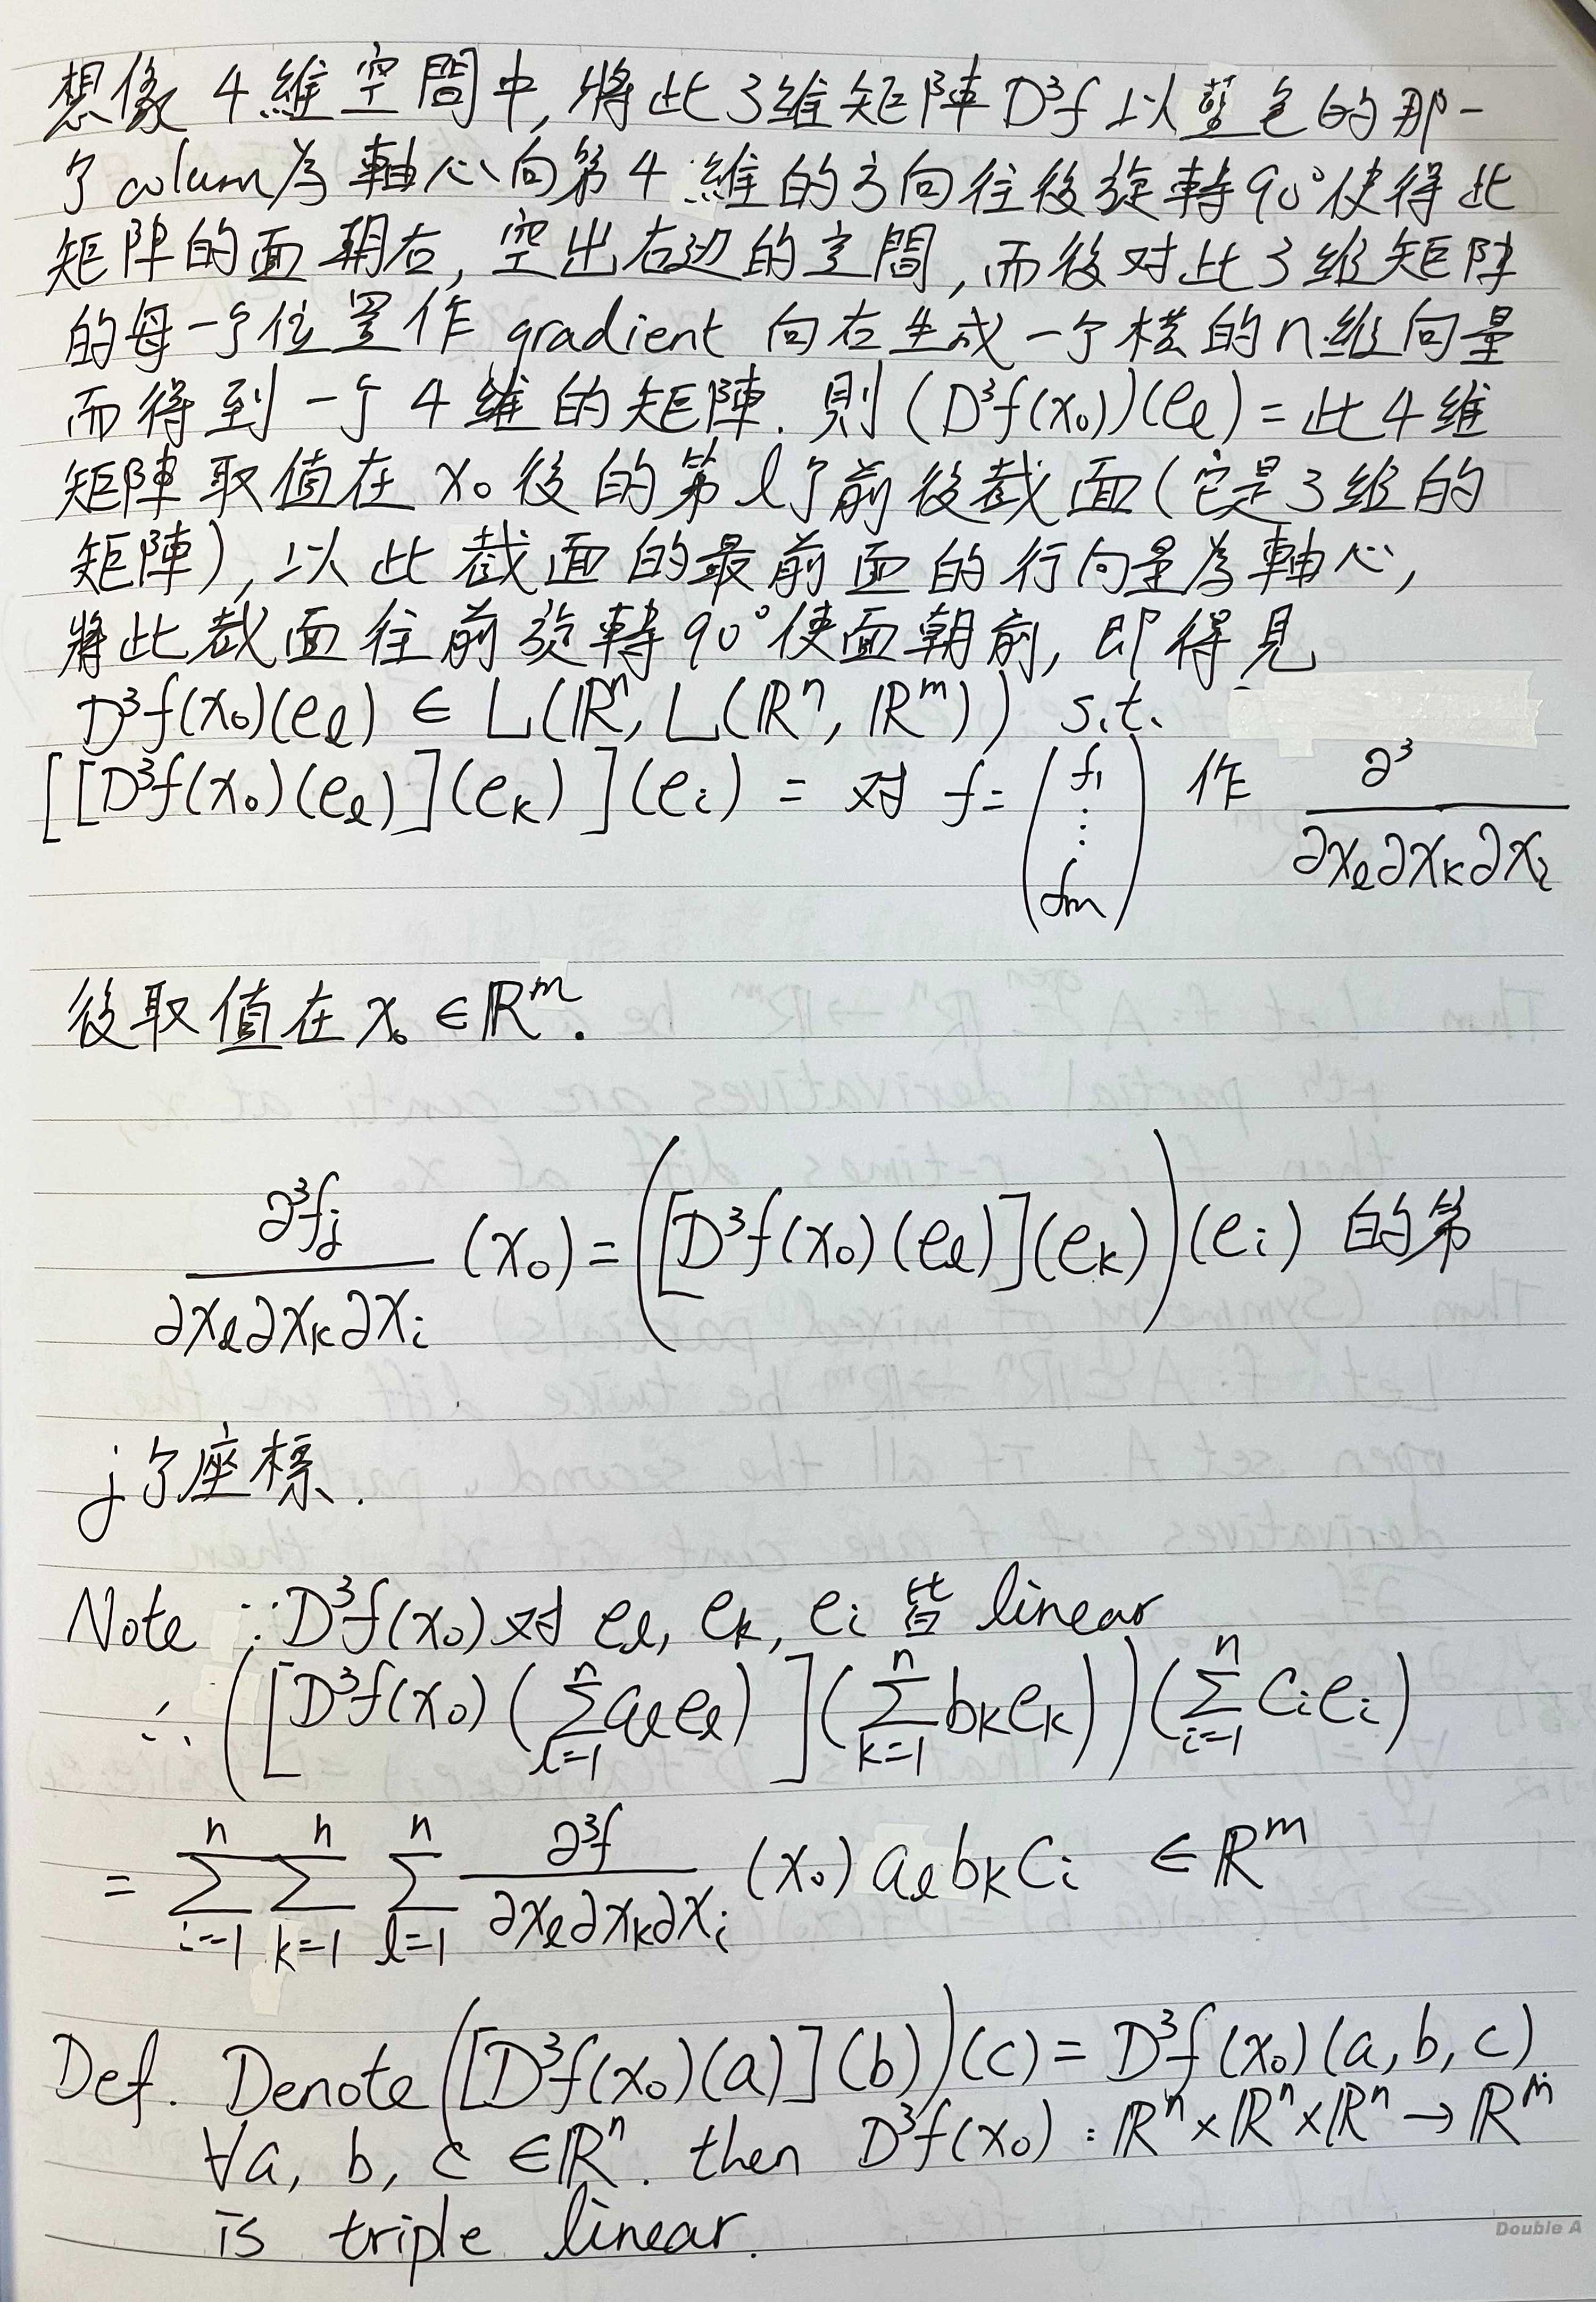 想像4維空間中,將此3維矩陣D³f以藍色的那一
个column為軸心向第4維的方向往後旋轉90°使得此
矩陣的面朝右,空出右边的空間,而後对此3維矩陣
的每一个位置作gradient向右生成一个横的n維向量
而得到一个4維的矩陣.則(D³f(x₀))(eℓ)=此4維
矩陣取值在x₀後的第ℓ个前後截面(它是3維的
矩陣),以此截面的最前面的行向量為軸心,
將此截面往前旋轉90°使面朝前,即得見
D³f(x₀)(eℓ) ∈ L(ℝⁿ, L(ℝⁿ, ℝᵐ)) s.t.
[[D³f(x₀)(eℓ)](eₖ)](eᵢ) = 对 f = (f₁ ⋮ fₘ) 作 ∂³/∂xℓ∂xₖ∂xᵢ
後取值在x₀∈ℝᵐ.
∂³fⱼ/∂xℓ∂xₖ∂xᵢ (x₀) = ([D³f(x₀)(eℓ)](eₖ))(eᵢ) 的第
j个座標.
Note ∵D³f(x₀)对 eℓ, eₖ, eᵢ 皆 linear
∴ ([D³f(x₀)(∑ℓ₌₁ⁿ aℓeℓ)](∑ₖ₌₁ⁿ bₖeₖ))(∑ᵢ₌₁ⁿ cᵢeᵢ)
= ∑ᵢ₌₁ⁿ ∑ₖ₌₁ⁿ ∑ℓ₌₁ⁿ ∂³f/∂xℓ∂xₖ∂xᵢ (x₀) aℓbₖcᵢ ∈ℝᵐ
Def. Denote ([D³f(x₀)(a)](b))(c) = D³f(x₀)(a, b, c)
∀a, b, c ∈ℝⁿ. then D³f(x₀) : ℝⁿ×ℝⁿ×ℝⁿ→ℝᵐ
is triple linear.
Double A